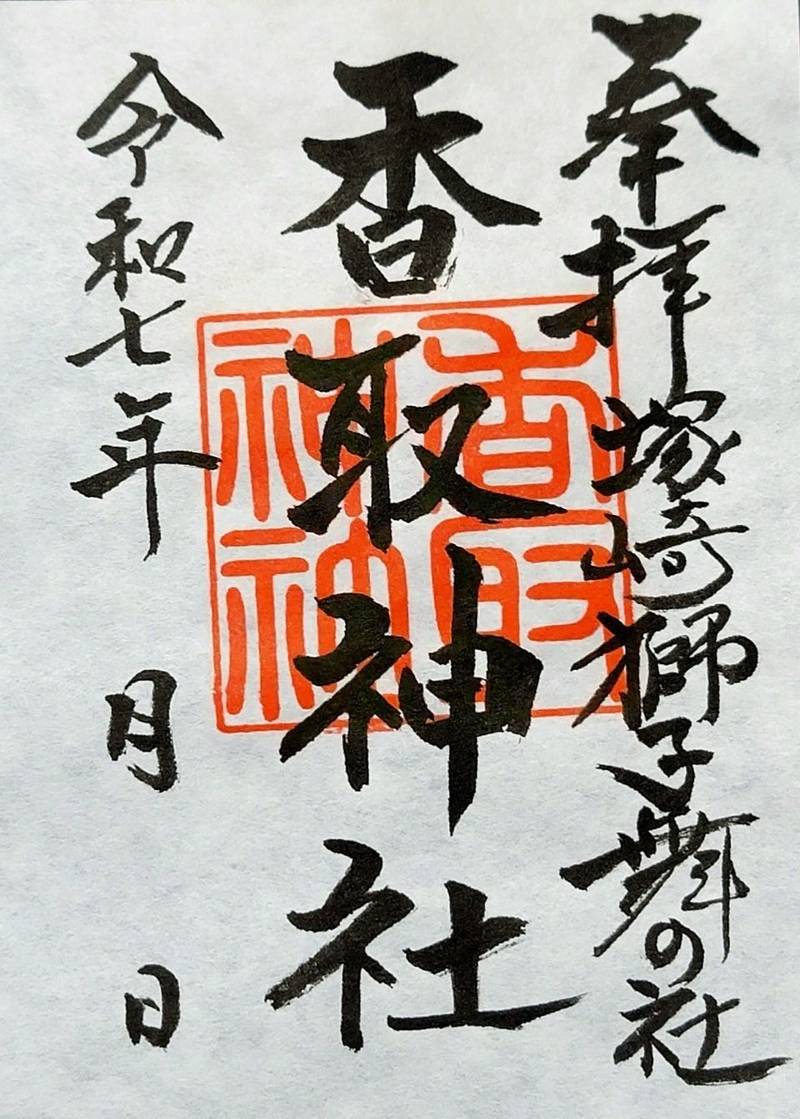 奉拝 塚崎獅子舞の社
香取神社
香取神社
令和七年 月 日